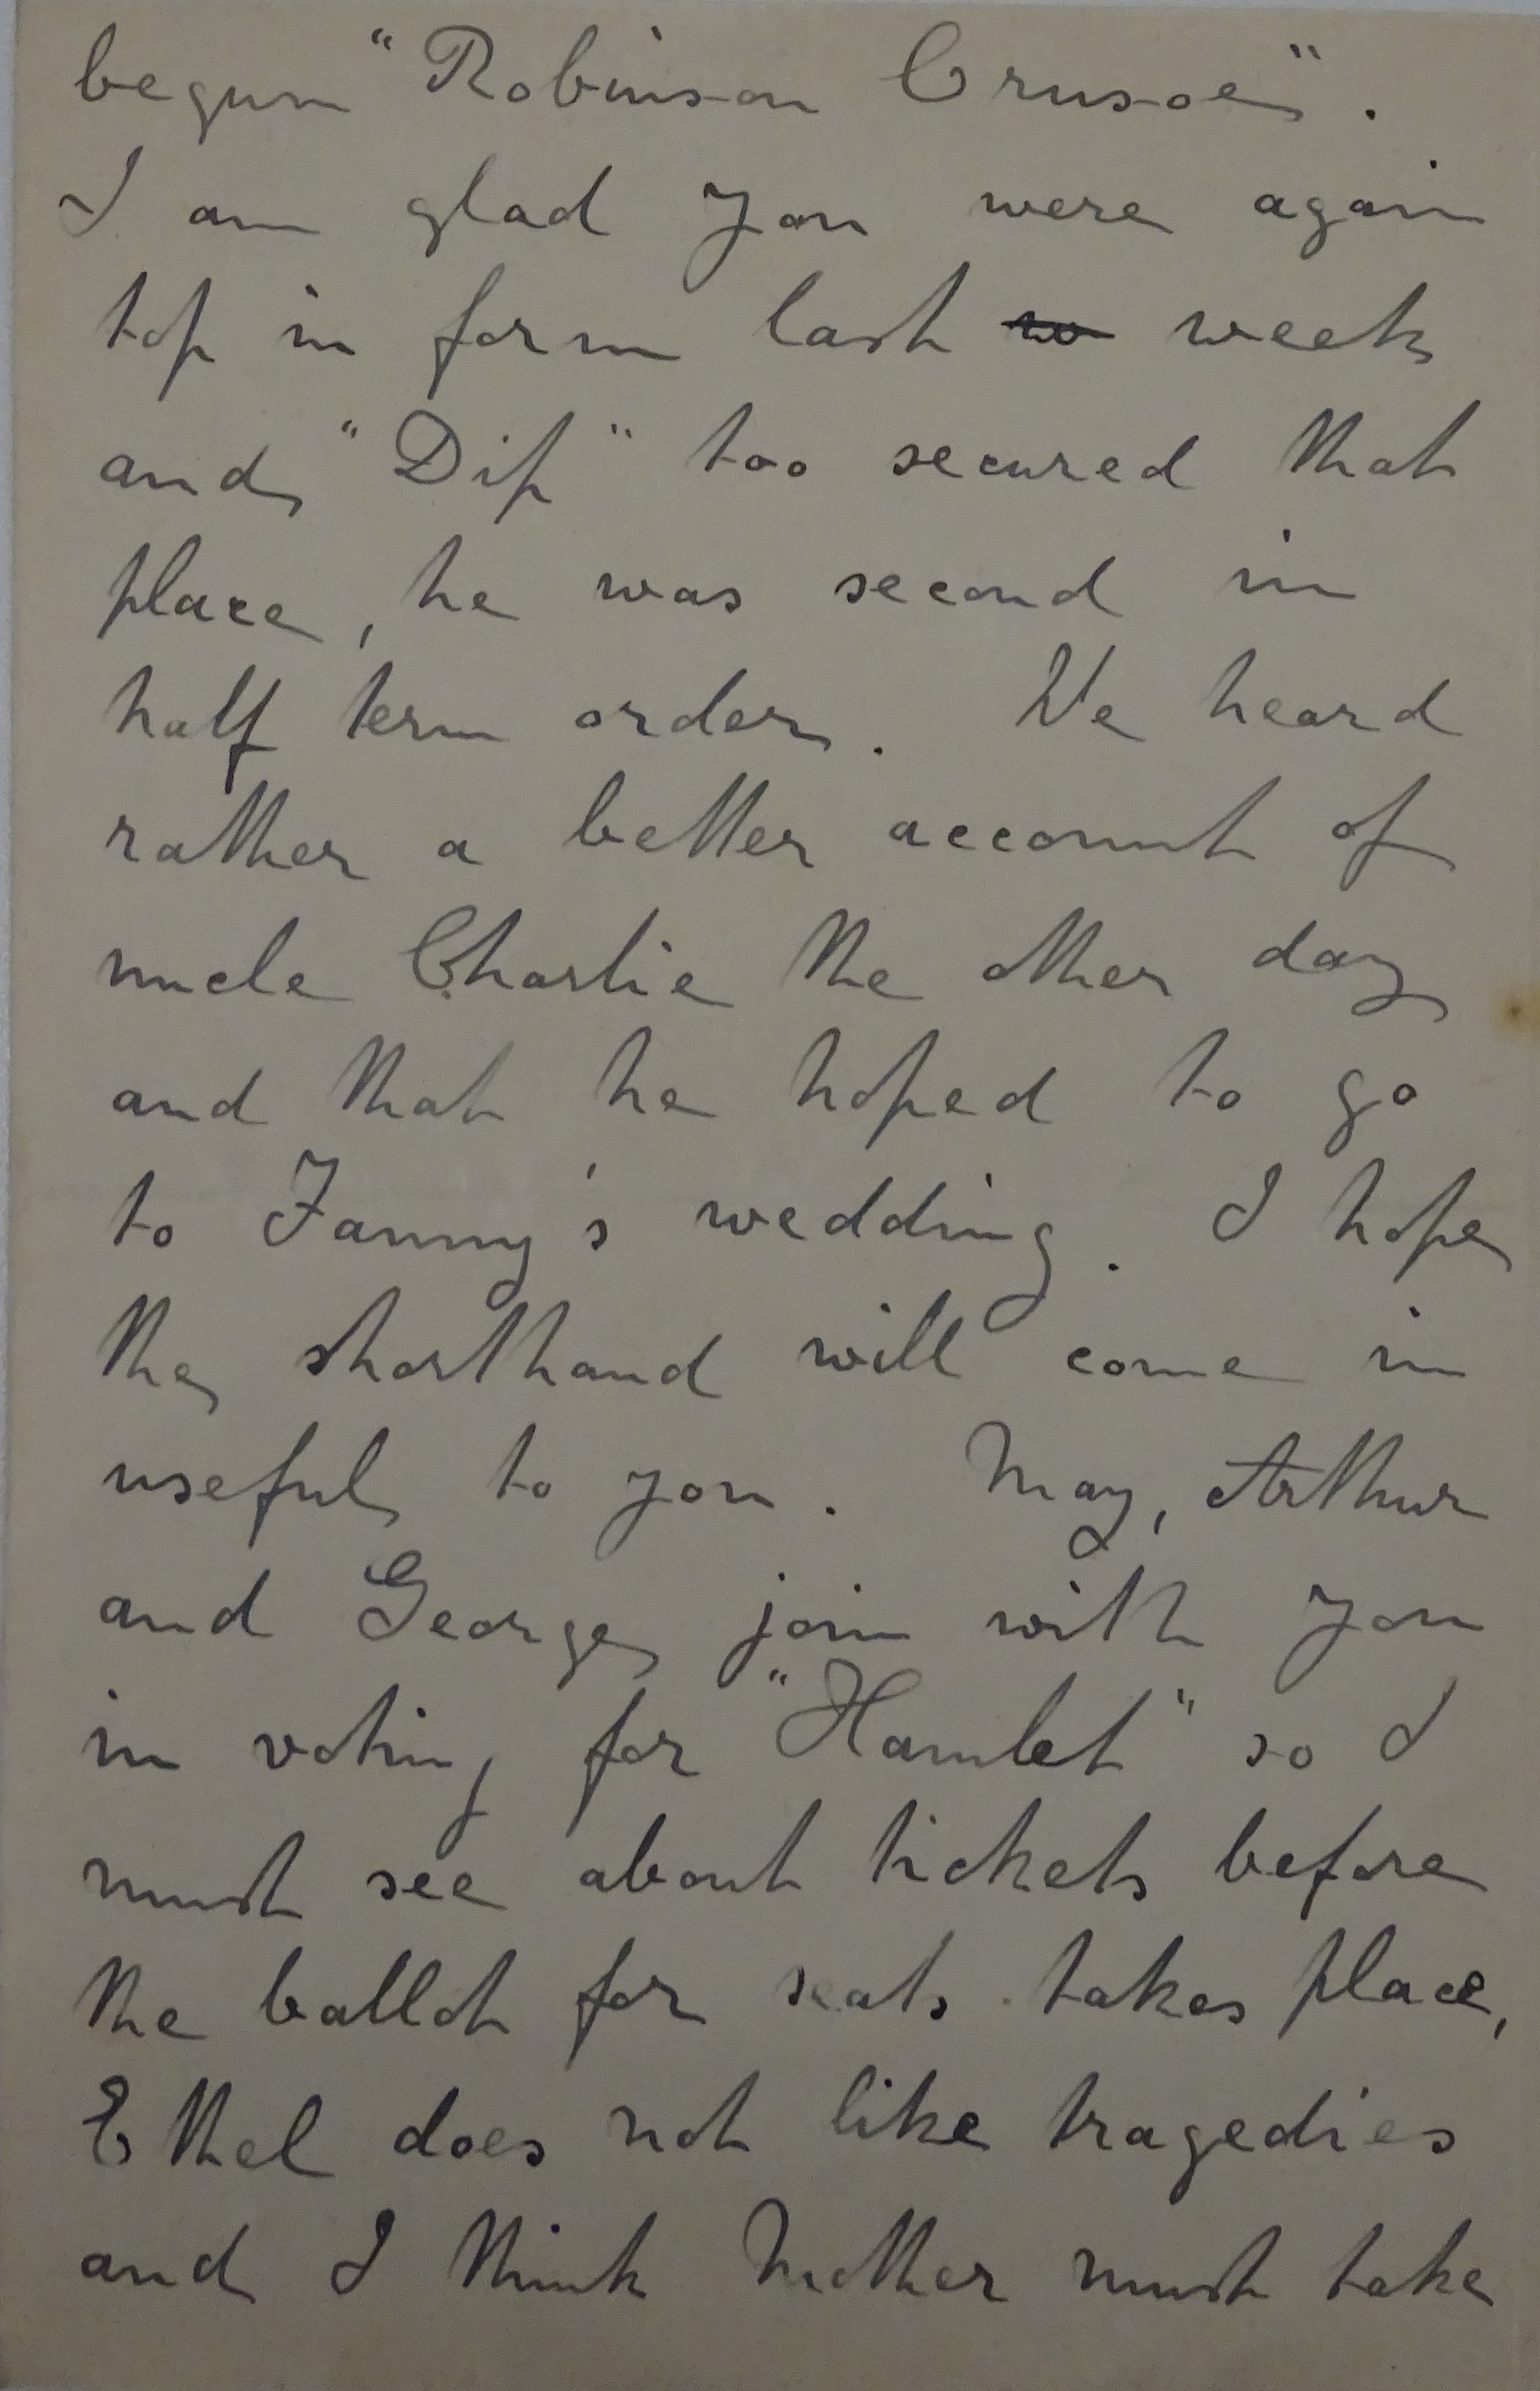 begun "Robinson Crusoe".
I am glad you were again
top in form last ~~w~~ week
and "Dip" too secured that
place, he was second in
half term order. We heard
rather a better account of
uncle Charlie the other day
and that he hoped to go
to Fanny's wedding. I hope
the shorthand will come in
useful to you. May, Arthur
and George join with you
in voting for "Hamlet" so I
must see about tickets before
the ballot for seats takes place,
Ethel does not like tragedies
and I think Mother must take